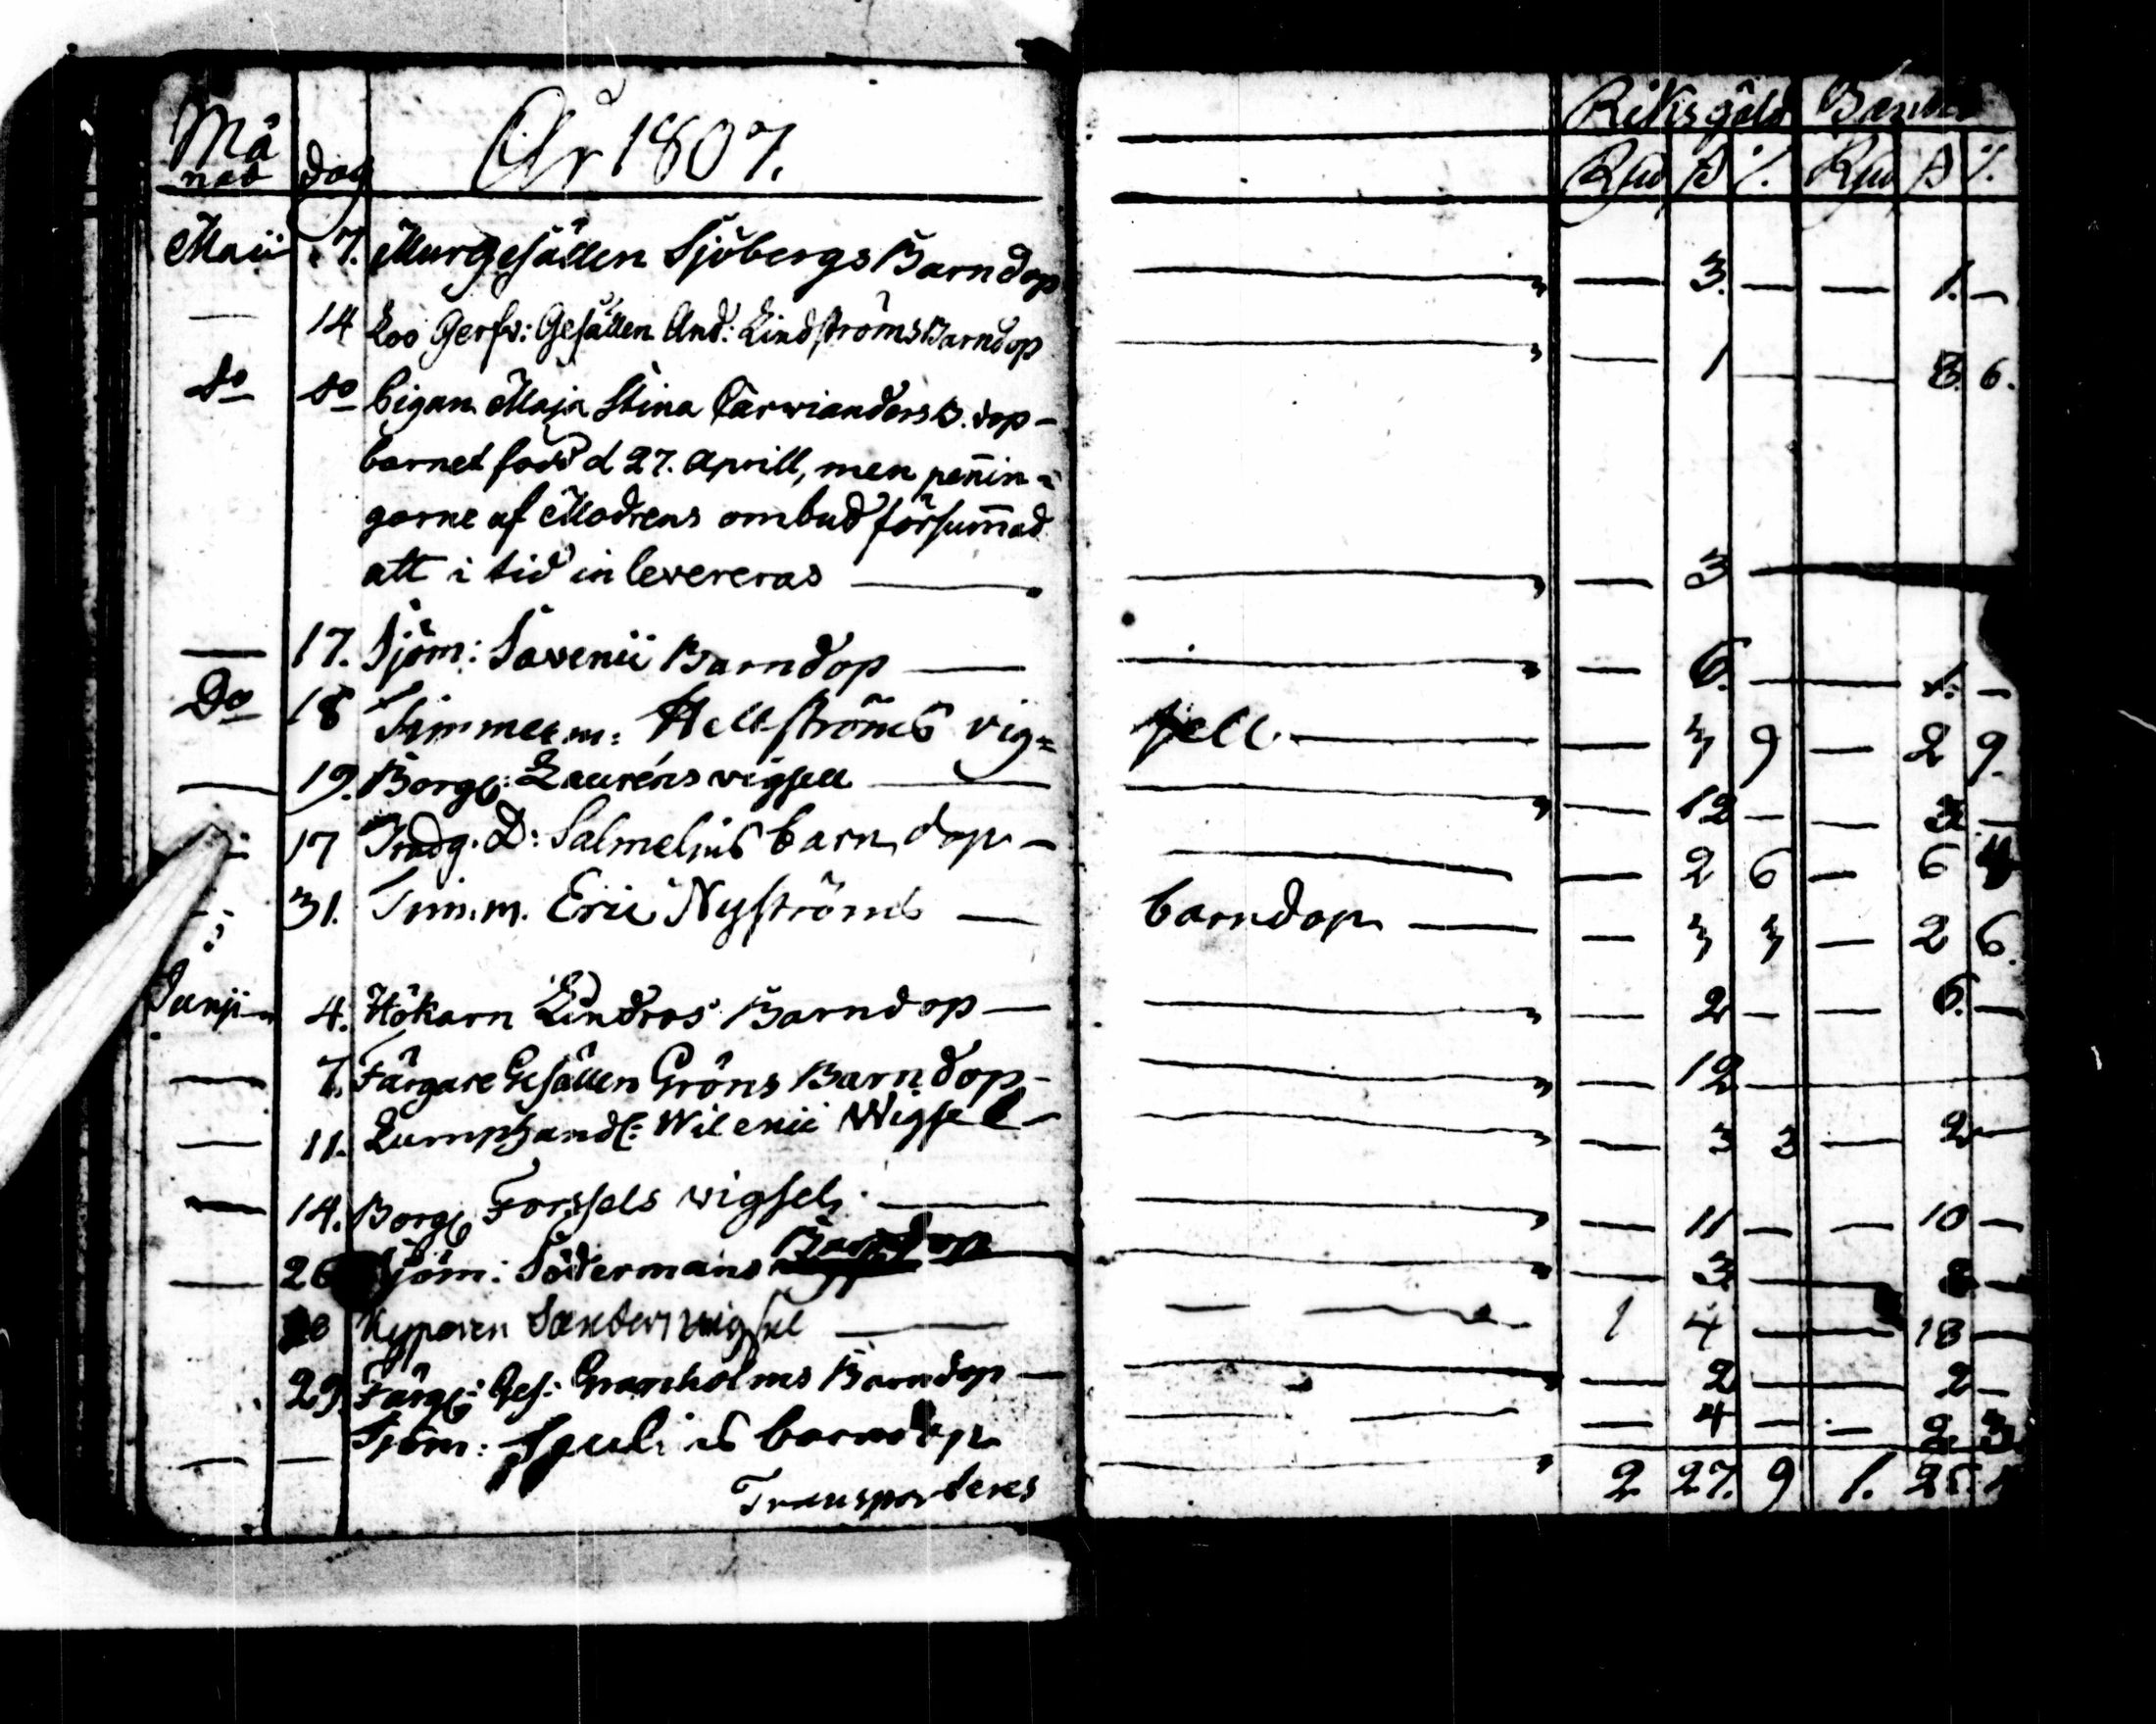 Riksgäld Banco
Må
nad dag År 1807. Rdr ß r. Rdr ß r.
Maii 7. MurGesällen Sjöbergs Barndop — 3. — — 1. —
— 14 Gesällen And: Lindströms Barndop — 1 — — 8. 6.
do do Pigan Maja Stina B. dop —
barnet född d 27. Aprill, men peñin=
garne af Modrens ombud försum̄ad
att i tid inlevereras — — 3 —
— 17. Sjöm: Savenii Barndop — — 6. — — 1. —
Do 18 Timmerm: Hellströms vig= sell — — 3 9 — 2 9.
— 19. Borg: Lauréns vigsell — — 12 — — 3 —
17 Trädg. D: Salmelius barn dop — — 2 6 — 6 4
31. Tim.m. Eric Nyströms — barndop — — 3 3 — 2 6.
Junii 4. Hökarn Lindros Barndop — — 2 — — 6. —
— 7. Färgare Gesällen Gröns Barndop — — 12 —
— 11. Lumphandl: Wilenii Wigsel — — 3 3 — 2 —
— 14. Borg Forssels wigsel. — — 11 — — 10 —
— 26 Sjöm: Södermans Barndop — — 3 — 8 —
Kyparen Sanders wigsel — 1 4 — 18 —
29. Färg: Ges: Granholms Barndop — — 2 — 2 —
— — Sjöm: barndop — 4 — — 2 3
Transporteres 2 27. 9 1. 25.